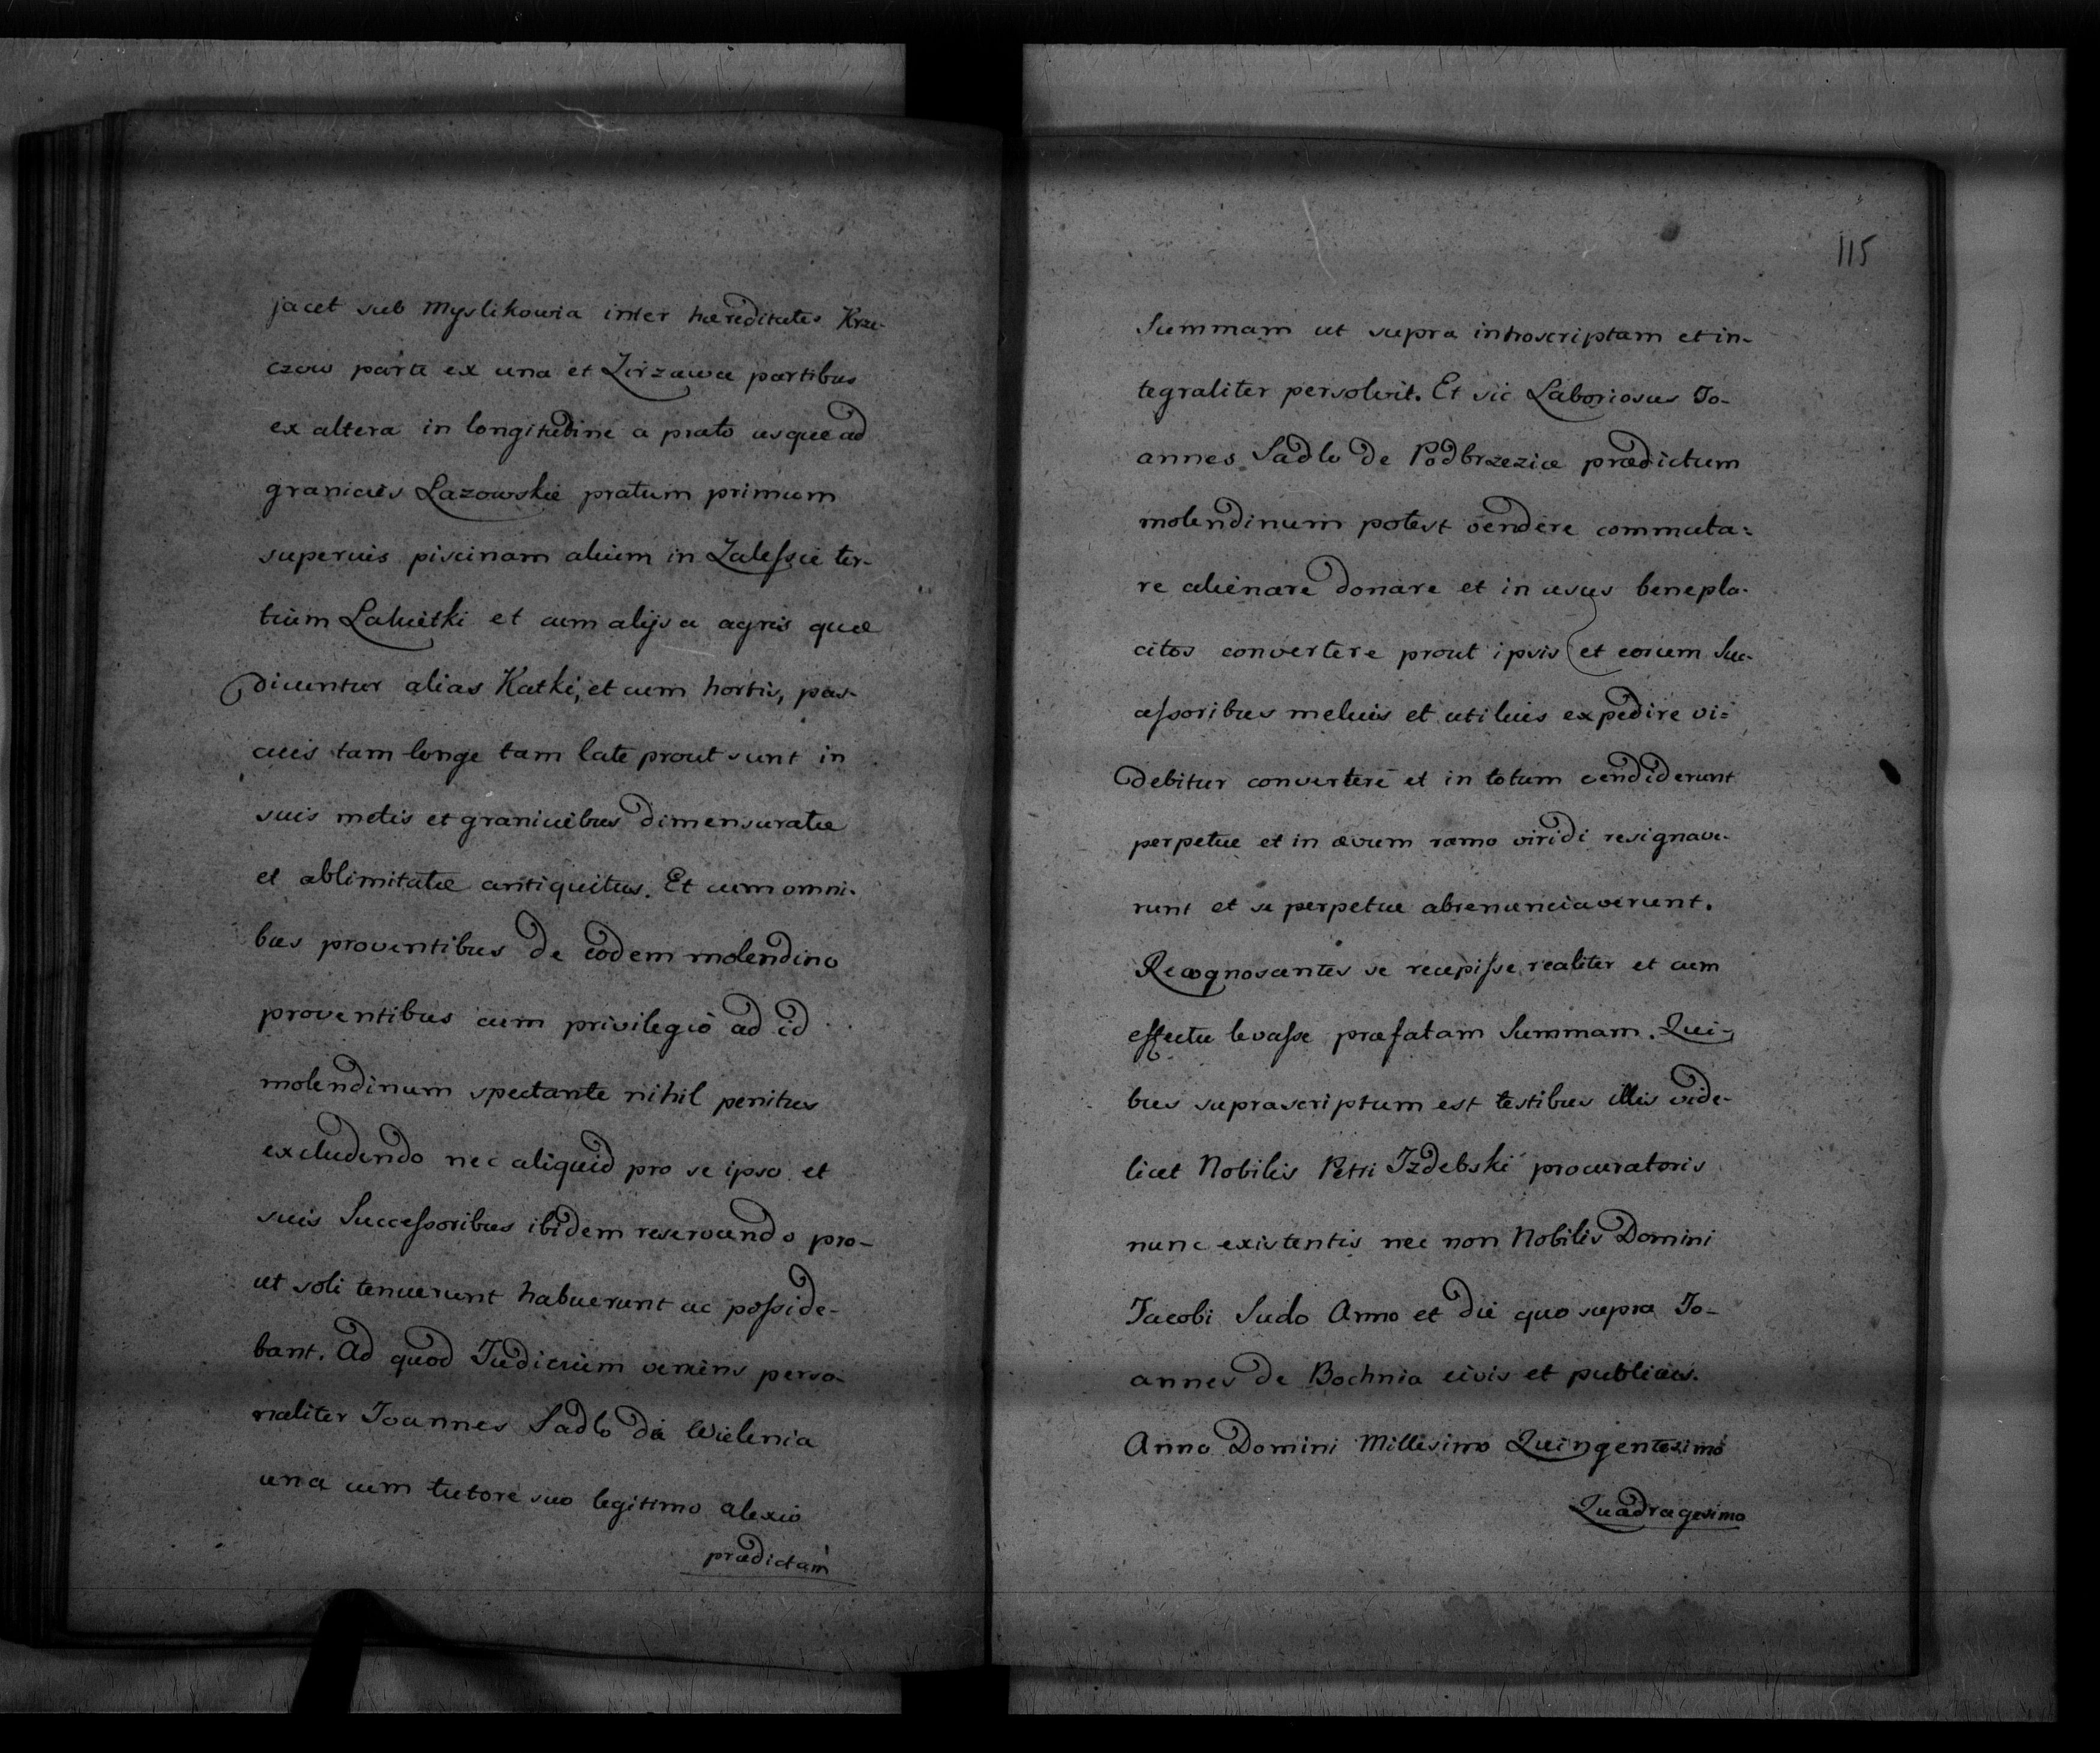 jacet sub Myslikowia inter hæreditates Krze-
czow parte ex una et Zirzawa partibus
ex altera in longitudine a prato usque ad
granicies Lazowskie pratum primum
superius piscinam alium in Zalessie ter-
tium Lahietki et cum alijs a agris quæ
dicuntur alias Katki, et cum hortis, pas-
cuis tam longe tam late prout sunt in
suis metis et granicibus dimensuratæ
et ablimitatæ antiquitus. Et cum omni-
bus proventibus de eodem molendino
proventibus cum privilegio ad id
molendinum spectante nihil penitus
excludendo nec aliquid pro se ipso et
suis Successoribus ibidem reservando pro-
ut soli tenuerunt habuerunt ac posside-
bant. Ad quod Judicium veniens perso-
naliter Joannes Sadlo de Wielenia
una cum tutore suo legitimo Alexio
prædictam
115
Summam ut supra introscriptam et in-
tegraliter persolvit. Et sic Laboriosus Jo-
annes Sadlo de Podbrzezie prædictum
molendinum potest vendere commuta=
re alienare donare et in usus benepla-
citos convertere prout ipsis et eorum Suc-
cessoribus melius et utilius expedire vi=
debitur convertere et in totum vendiderunt
perpetue et in ævum ramo viridi resignave-
runt et se perpetue abrenunciaverunt.
Recognoscentes se recepisse realiter et cum
effectu levasse præfatam Summam. Qui-
bus suprascriptum est testibus illis vide-
licet Nobilis Petri Izdebski procuratoris
nunc existentis nec non Nobilis Domini
Jacobi Sudo Anno et die quo supra Jo-
annes de Bochnia civis et publicus.
Anno Domini Millesimo Quingentesimo
Quadragesimo